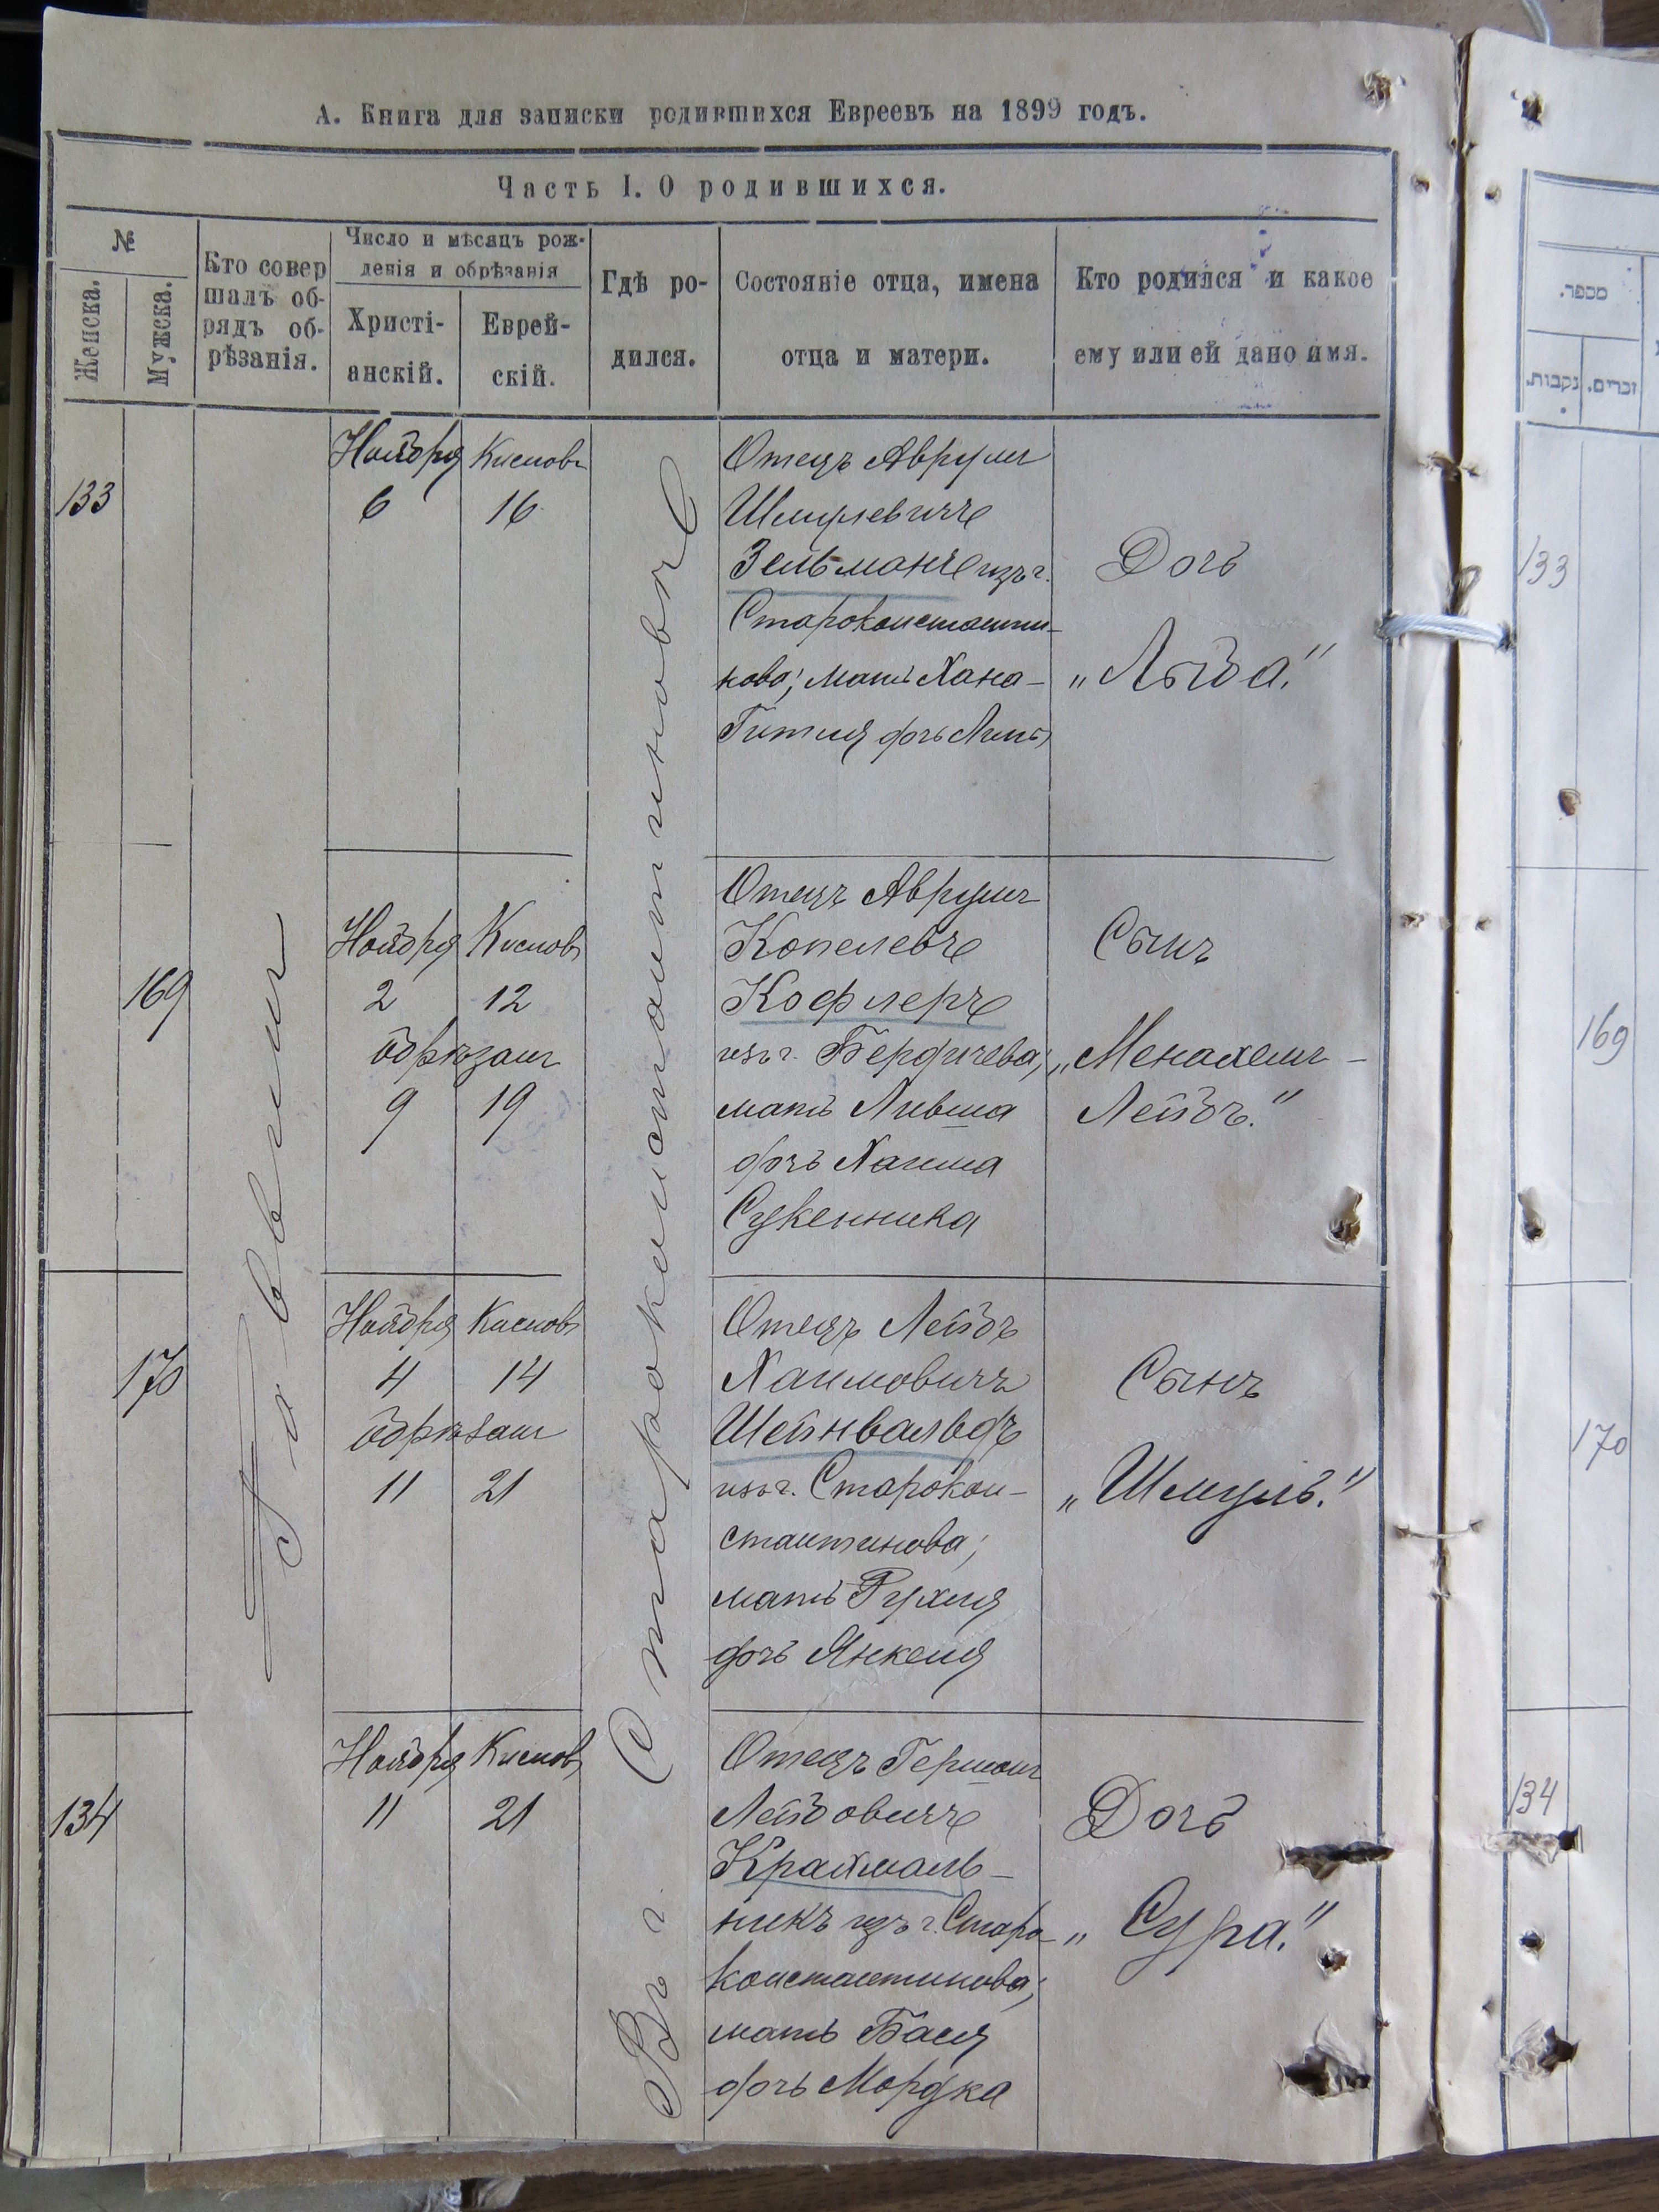 А. Книга для записки родившихся Евреевъ на 1899 годъ.
Часть I. О родившихся.
№
Женска.
Мужска.
Кто совер
шалъ об-
рядъ об-
рѣзанія.
Число и мѣсяцъ рож-
денія и обрѣзанія
Христі-
анскій.
Еврей-
скій.
Гдѣ ро-
дился.
Состояніе отца, имена
отца и матери.
Кто родился и какое
ему или ей дано имя.
Раввинъ
Въ г. Староконстантиновѣ
133
Ноября Кислов
6 16
Отецъ Аврумъ
Шмулевичъ
Зельманъ изъ г.
Староконстанти-
нова; мать Хана-
Гитля дочь
Дочь
„Лыба."
169
Ноября Кислов
2 12
обрѣзанъ
9 19
Отецъ Аврумъ
Копелевъ
Кофлеръ
изъ г. Бердичева;
мать Ливша
дочь Хаима
Сукенника
Сынъ
„Менахемъ-
Лейбъ."
170
Ноября Кислов
4 14
обрѣзанъ
11 21
Отецъ Лейбъ
Хаимовичъ
Шейнвальдъ
изъ г. Старокон-
стантинова;
мать Рухля
дочь Янкеля
Сынъ
„Шмуль."
134
Ноября Кислов
11 21
Отецъ Гершонъ
Лейбовичъ
Крахмаль-
никъ изъ г. Старо-
константинова;
мать Бася
дочь Мордка
Дочь
„Сура."
מספר.
נקבות.
זכרים.
133
169
170
134